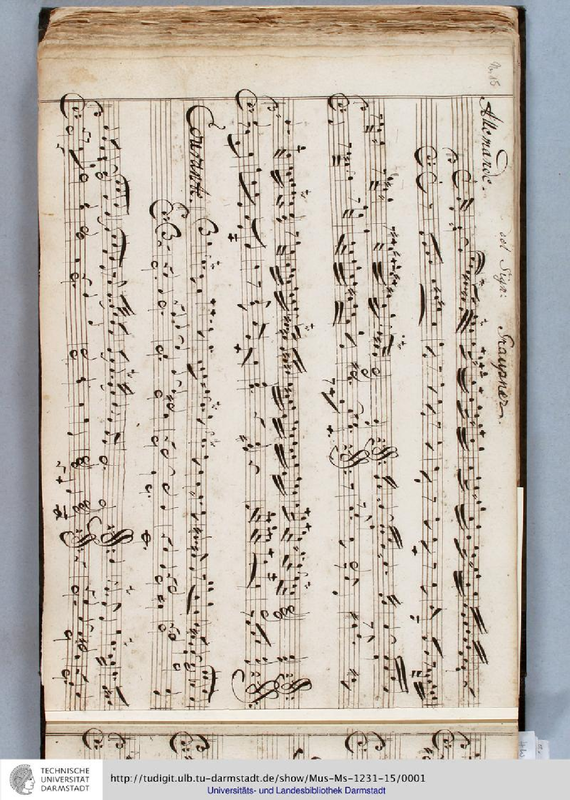 Allemande.
del Sign: Graupner.
Courante.
TECHNISCHE
UNIVERSITÄT
DARMSTADT
http://tudigit.ulb.tu-darmstadt.de/show/Mus-Ms-1231-15/0001
Universitäts- und Landesbibliothek Darmstadt